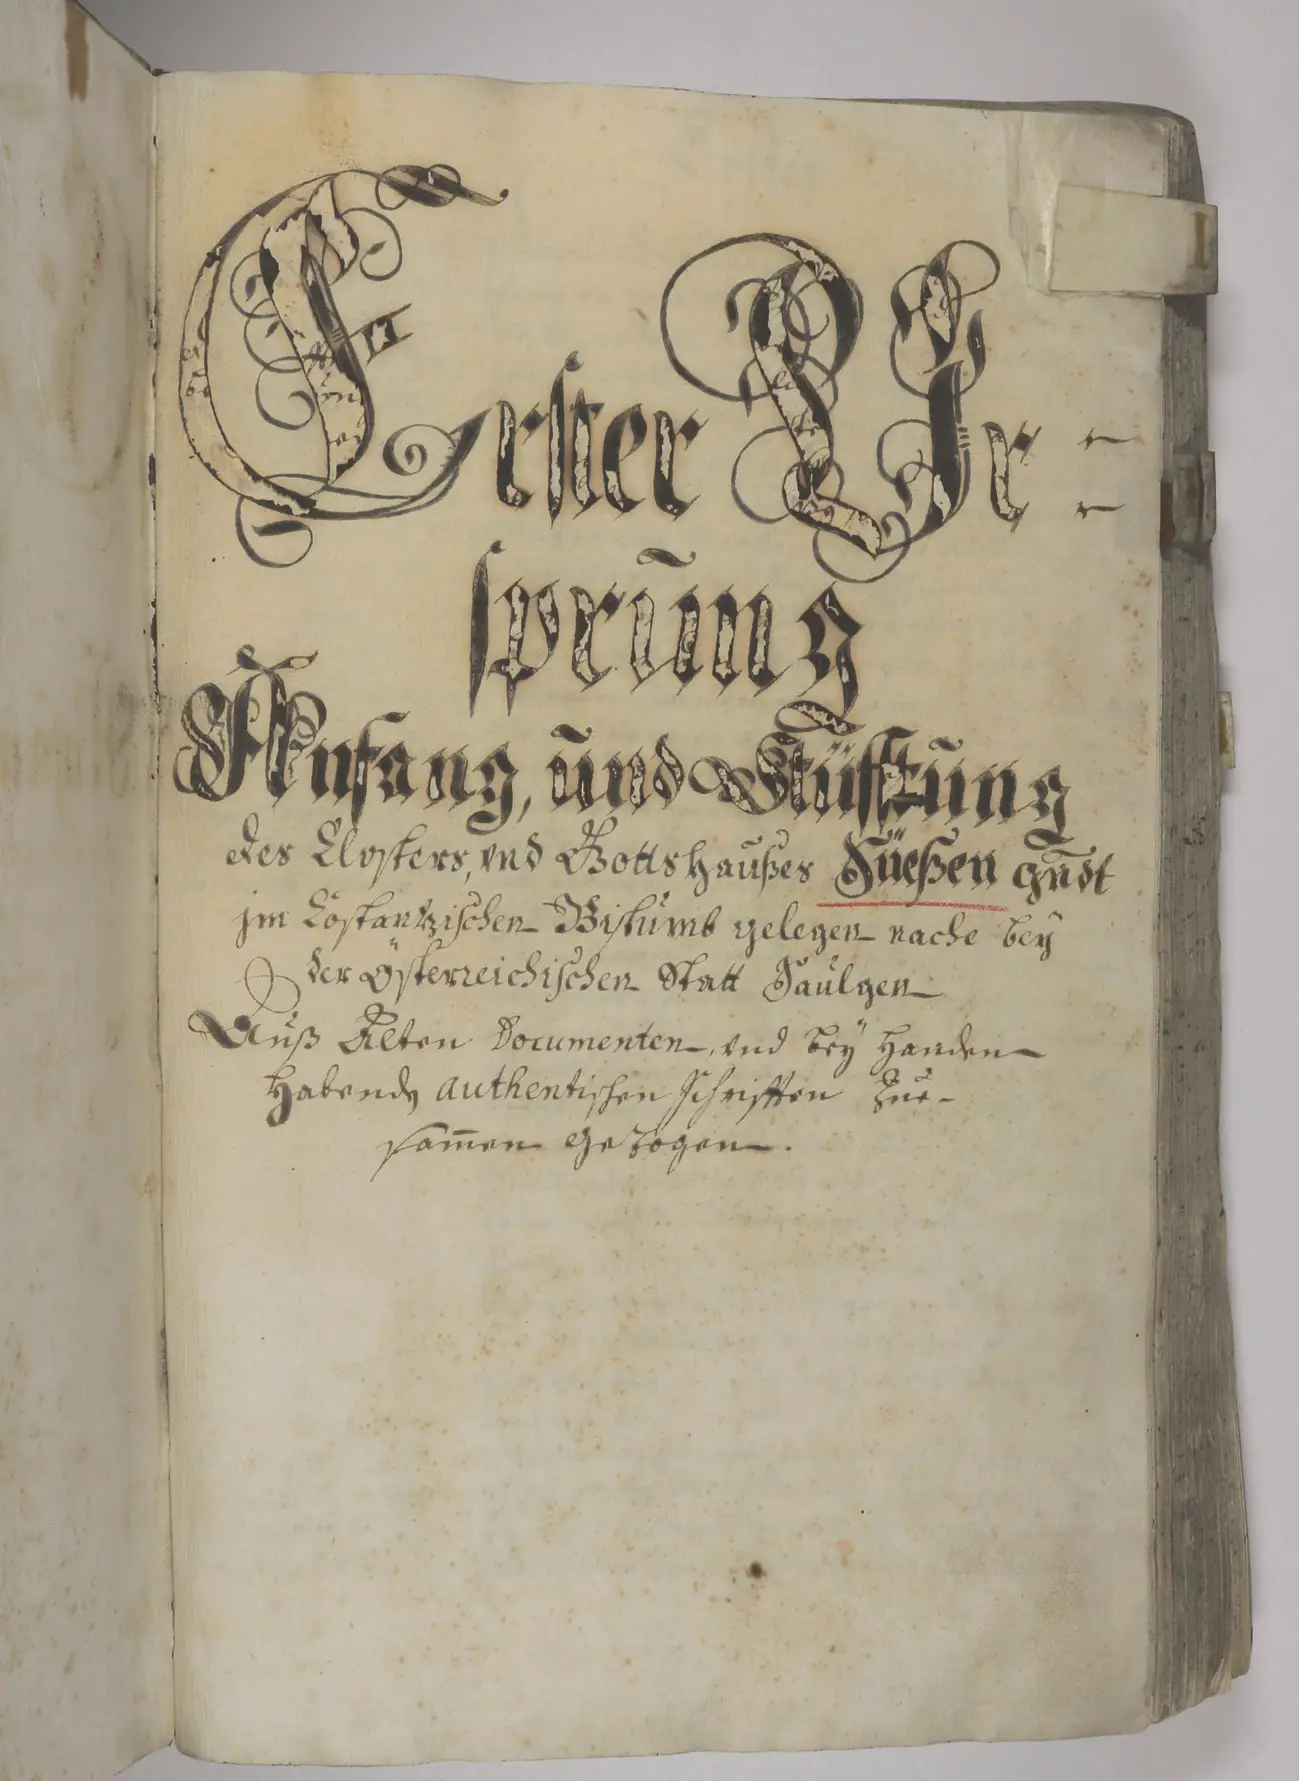 Erster Vr=
sprūng
Anfang, ūnd Stüfftūng
des Closters, vnd Gottshaußes Süeßen
im Costantzischen Bistumb gelegen nache beÿ
der Österreichischen Statt Saulgen
Auß Alten Documenten, vnd beÿ Handen
Habendt authentischen Schrifften Zue-
sam̄en gezogen.